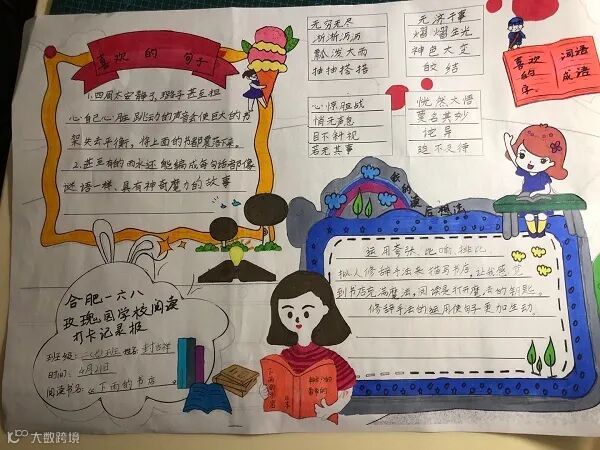 喜欢的句子
1.四周太安静了,璐宇甚至担
心自己心脏跳动的声音会使巨大的书
架失去平衡,将上面的书都震落下来。
2.甚至有的雨水还能编成每句话都像
谜语一样,具有神奇魔力的故事
无穷无尽
淅淅沥沥
瓢泼大雨
抽抽搭搭
无济于事
熠熠生光
神色大变
皎洁
心惊胆战
悄无声息
目不斜视
若无其事
恍然大悟
莫名其妙
诧异
迫不及待
喜欢的字、
词语
成语
我的读后想法
运用夸张、比喻、排比、
拟人修辞手法来描写书店,让我感觉
到书店充满魔法,阅读是打开魔法的钥匙。
修辞手法的运用使句子更加生动。
合肥一六八
玫瑰园学校阅读
打卡记录报
班级: 姓名:
时间: 4月2日
阅读书名:《下雨的书店》
下雨的书店
大数跨境